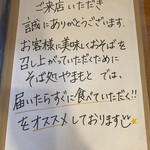 ご来店いただき
誠にありがとうございます。
お客様に美味しくおそばを
召し上がっていただくために
そば処やまもと では、
届いたらすぐに食べていただく!!
をオススメしております